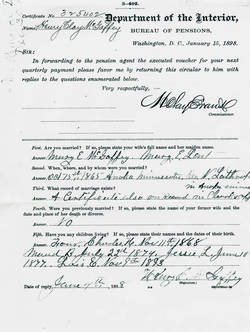 3-402.
Certificate No. 325402
Department of the Interior,
Name, Henry Clay McGaffey
BUREAU OF PENSIONS,
Washington, D. C., January 15, 1898.
SIR:
In forwarding to the pension agent the executed voucher for your next
quarterly payment please favor me by returning this circular to him with
replies to the questions enumerated below.
Very respectfully,
H Clay Evans
Commissioner.
First. Are you married? If so, please state your wife's full name and her maiden name.
Second. When, where, and by whom were you married?
Oct 15th 1865 Anoka Minnesota
Third. What record of marriage exists?
A Certificate also on
Fourth. Were you previously married? If so, please state the name of your former wife and the
date and place of her death or divorce.
No
Fifth. Have you any children living? If so, please state their names and the dates of their birth.
Four, Charles Nov 11th 1868
July 22nd 1874, Jessie L June 10
1877, E Nov 8th 1893
(Signature)
Date of reply, June 4th, 1898